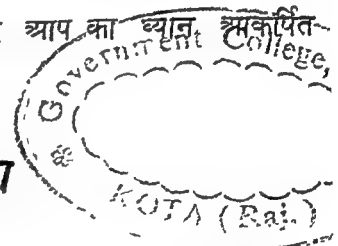 आप का ध्यान आकर्षित
Government College,
KOTA (Raj.)